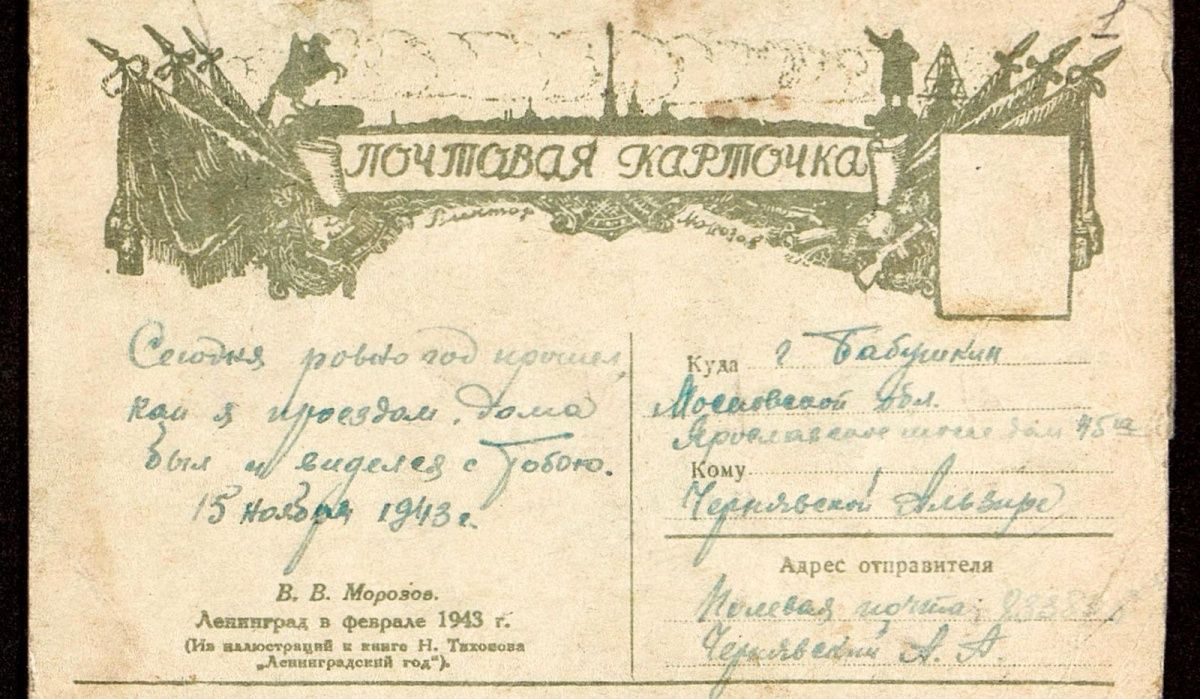 1
ПОЧТОВАЯ КАРТОЧКА
Виктор Морозов
Сегодня ровно год прошел,
как я проездом дома
был и виделся с Тобою.
15 ноября 1943 г.
В. В. Морозов.
Ленинград в феврале 1943 г.
(Из иллюстраций к книге Н. Тихонова
„Ленинградский год“).
Куда г Бабушкин
Московской обл.
Ярославское шоссе дом 75
Кому
Чернявской Альзире
Адрес отправителя
Полевая почта
Чернявский А. А.